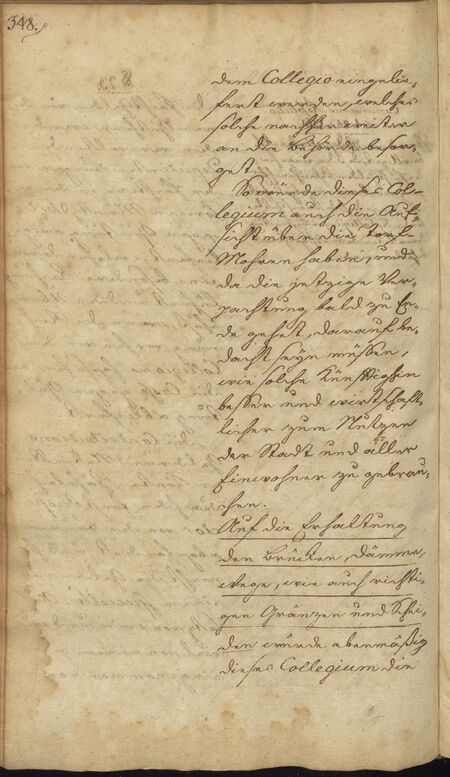 348.
dem Collegio eingelie-
fert werden, welches
solche nachher weiter
an die Behörde besor-
get.
So würde dieses Col-
legium auch die Auf-
sicht über die Torf-
Mohren haben, und
da die jetzige Ver-
pachtung bald zu En-
de gehet, darauf be-
dacht seyn müssen,
wie solche künfftighin
besser und wirtschaft-
licher zum Nutzen
der Stadt und aller
Einwohner zu gebrau-
chen.
Auf die Erhaltung
der Brücken, Dämme,
Wege, wie auch richti-
gen Gränzen und Schei-
den würde ebenmäßig
dieses Collegium die